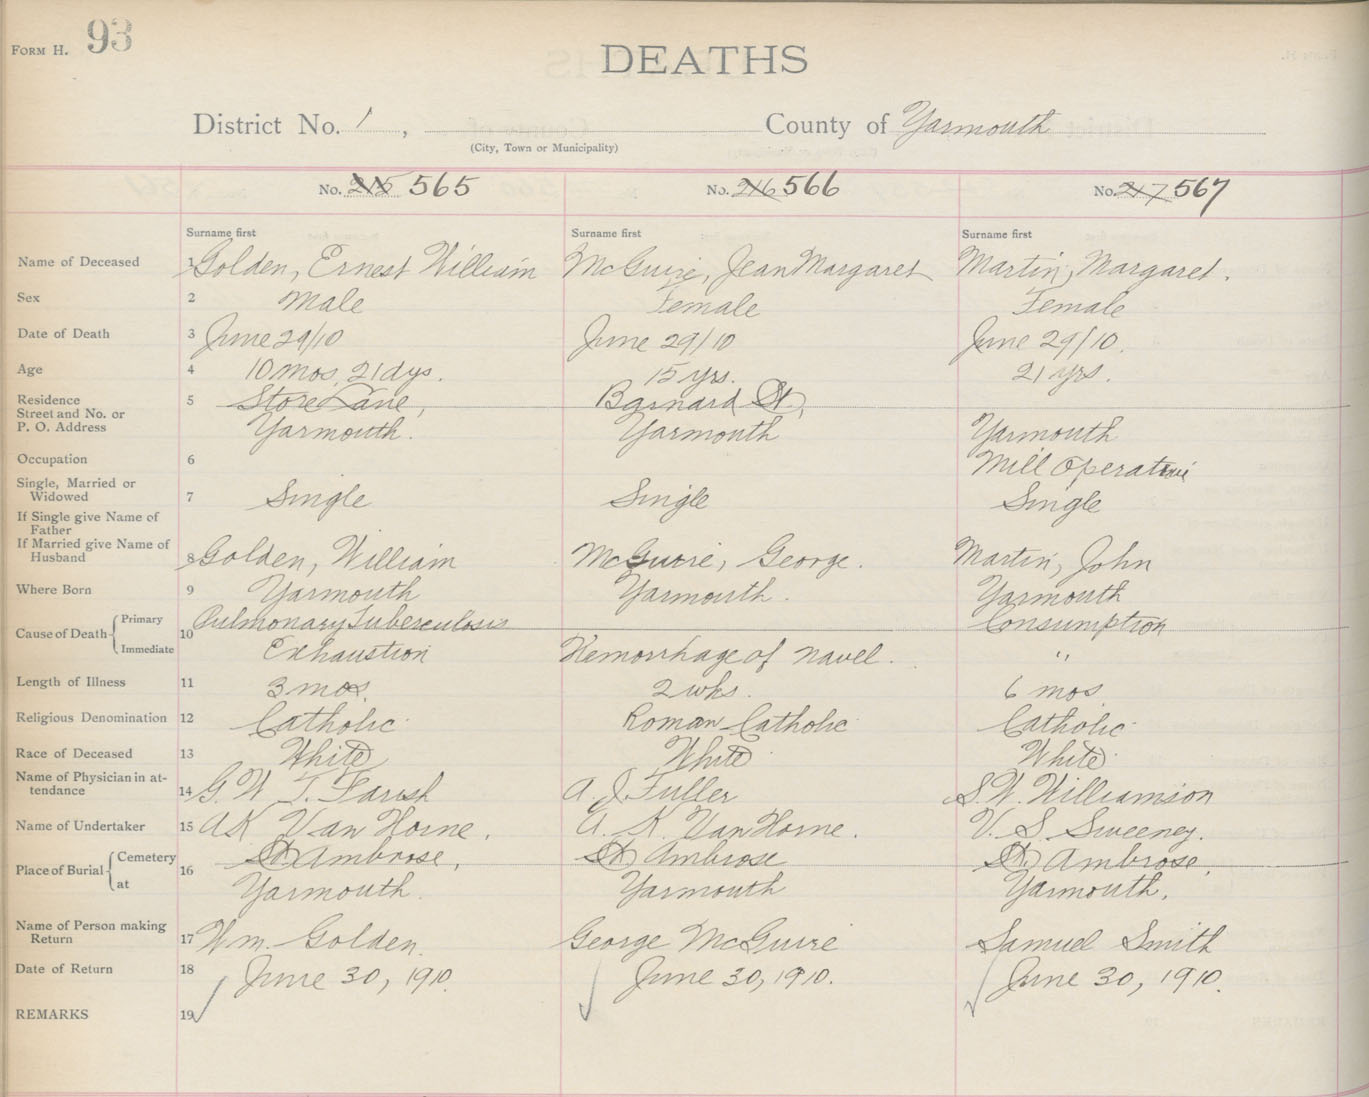 FORM H. 93
DEATHS
District No. 1, County of Yarmouth
(City, Town or Municipality)
No. 215 565 No. 216 566 No. 217 567
Surname first Surname first Surname first
Name of Deceased 1 Golden, Ernest William McGuire, Jean Margaret Martin, Margaret.
Sex 2 Male Female Female
Date of Death 3 June 29/10 June 29/10 June 29/10.
Age 4 10 mos, 21 dys. 15 yrs. 21 yrs.
Residence 5 Store Lane, Barnard St.,
Street and No. or
P. O. Address Yarmouth. Yarmouth Yarmouth
Occupation 6 Mill Operative
Single, Married or
Widowed 7 Single Single Single
If Single give Name of
Father
If Married give Name of
Husband 8 Golden, William McGuire, George. Martin, John
Where Born 9 Yarmouth Yarmouth. Yarmouth
Cause of Death Primary 10 Pulmonary Tuberculosis Consumption
Immediate Exhaustion Hemorrhage of navel. "
Length of Illness 11 3 mos. 2 wks. 6 mos
Religious Denomination 12 Catholic Roman Catholic Catholic
Race of Deceased 13 White White White
Name of Physician in at-
tendance 14 G. W. T. Farish A. J. Fuller S. W. Williamson
Name of Undertaker 15 A K Van Horne. A. K. Van Horne. V. S. Sweeney.
Place of Burial Cemetery 16 St Ambrose, St Ambrose St. Ambrose,
at Yarmouth. Yarmouth Yarmouth.
Name of Person making
Return 17 Wm. Golden. George McGuire Samuel Smith
Date of Return 18 June 30, 1910. June 30, 1910. June 30, 1910.
REMARKS 19